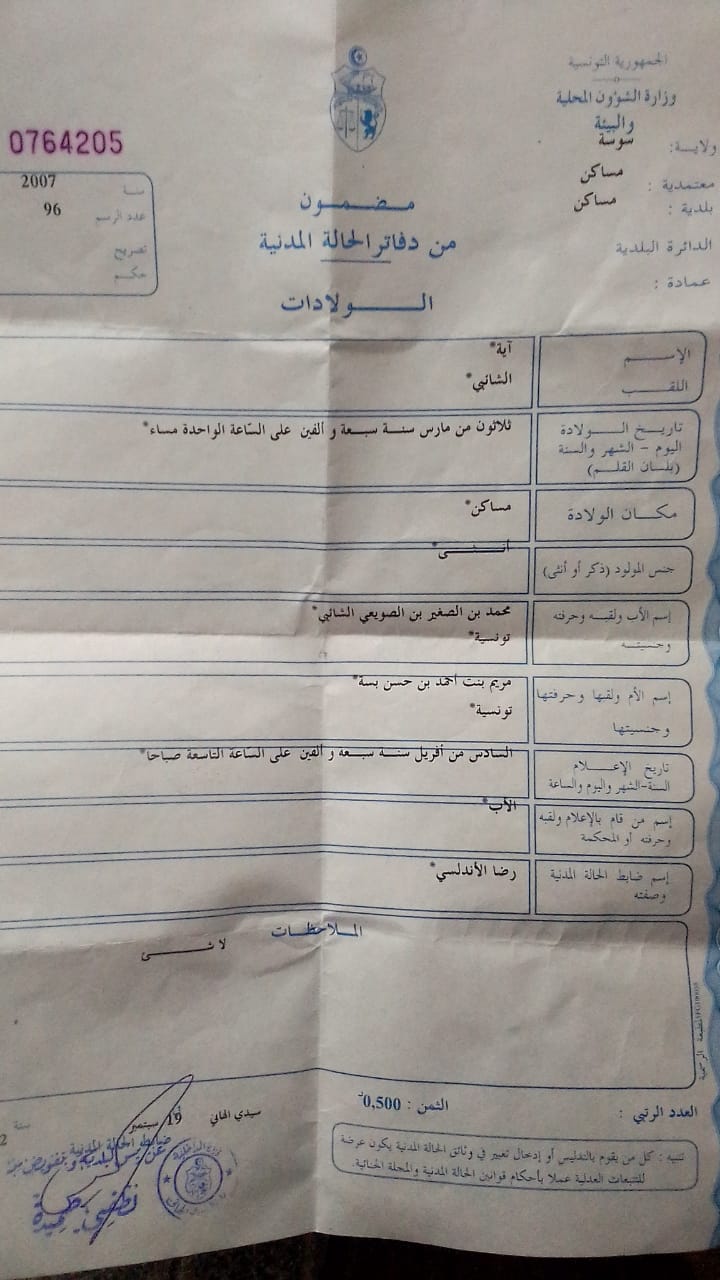 الجمهورية التونسية
وزارة الشؤون المحلية
والبيئة
ولاية: سوسة
معتمدية : مساكن
بلدية : مساكن
الدائرة البلدية
عمادة :
0764205
سنة 2007
عدد الرسم 96
تصريح
حكم
مضمون
من دفاتر الحالة المدنية
الولادات
الإسم آية*
اللقب الشائبي*
تاريخ الولادة
اليوم - الشهر والسنة
(بلسان القلم)
ثلاثون من مارس سنة سبعة و ألفين على السّاعة الواحدة مساء*
مكان الولادة مساكن*
جنس المولود (ذكر أو أنثى) أنثى*
إسم الأب ولقبه وحرفته
وجنسيته
محمد بن الصغير بن الصويعي الشائبي*
تونسية*
إسم الأم ولقبها وحرفتها
وجنسيتها
مريم بنت أحمد بن حسن بسة*
تونسية*
تاريخ الإعلام
السنة-الشهر واليوم والساعة
السادس من أفريل سنة سبعة و ألفين على الساعة التاسعة صباحا*
إسم من قام بالإعلام ولقبه
وحرفته أو المحكمة
الأب*
إسم ضابط الحالة المدنية
وصفته
رضا الأندلسي*
الملاحظات
لا شئ
المطبعة الرسمية
العدد الرتبي :
الثمن : 0,500د
سيدي الهاني 19 سبتمبر سنة 2
ضابط الحالة المدنية
عن رئيس البلدية و بتفويض منه
تنبيه : كل من يقوم بالتدليس أو إدخال تغيير في وثائق الحالة المدنية يكون عرضة
للتتبعات العدلية عملا بأحكام قوانين الحالة المدنية والمجلة الجنائية.